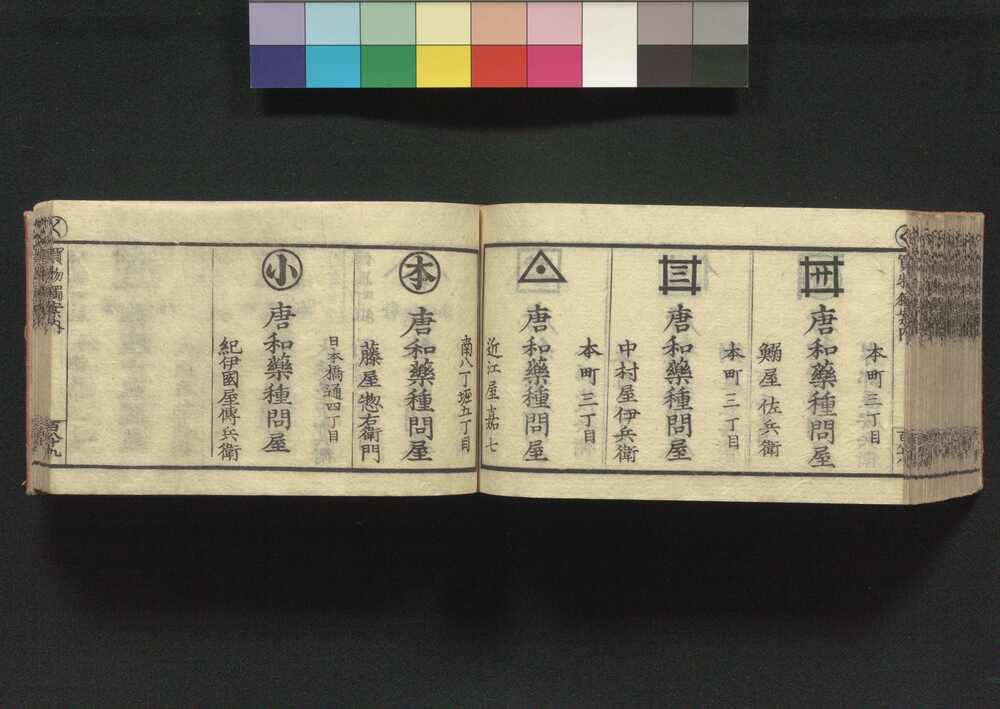 本町三丁目
唐和藥種問屋
鰯屋佐兵衛
本町三丁目
三
唐和藥種問屋
中村屋伊兵衛
本町三丁目
唐和藥種問屋
近江屋嘉七
南八丁堀五丁目
本
唐和藥種問屋
藤屋惣右衛門
日本橋通四丁目
小
唐和藥種問屋
紀伊國屋傳兵衛
く
買物獨案内
百八十九